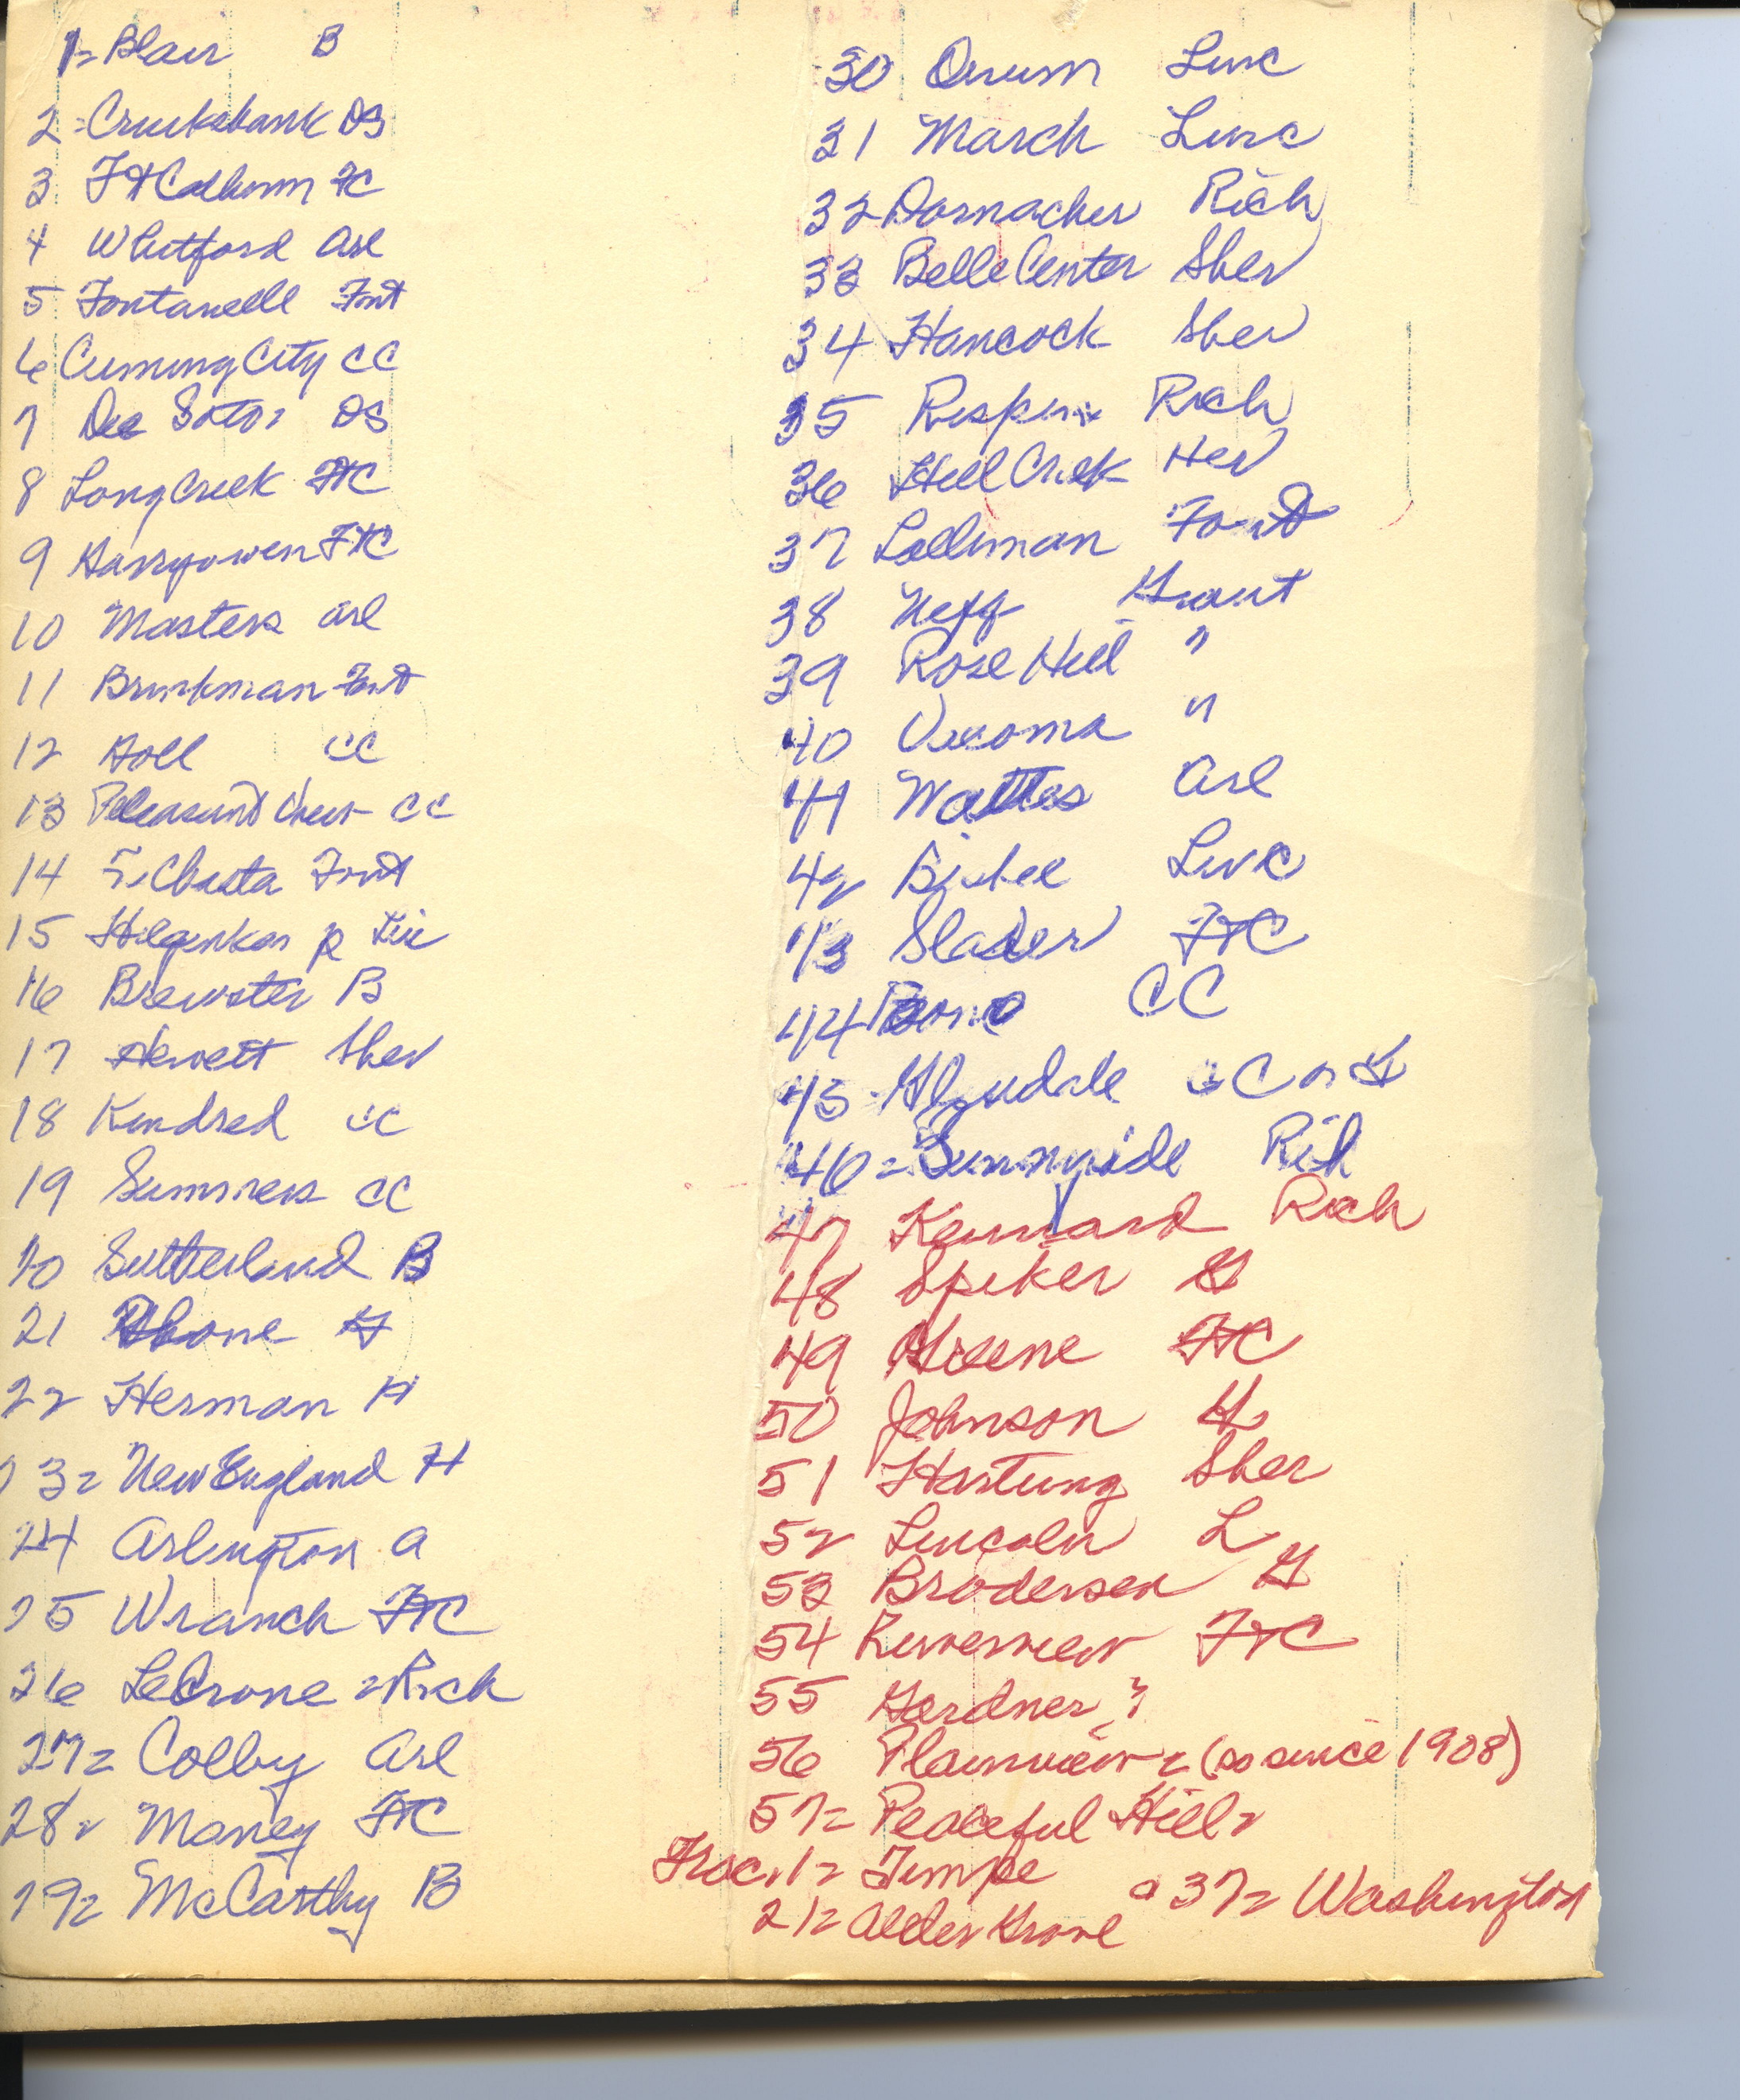 1= Blair B
2 = Cruikshank DS
3 Ft Calhoun FC
4 Whitford Arl
5 Fontanelle Font
6 Cuming City CC
7 De Soto DS
8 Long Creek FtC
9 Harryowen FtC
10 Masters Arl
11 Brinkman Font
12 Holl CC
13 Pleasant View CC
14 Font
15 Lin
16 Brewster B
17 Hewett Sher
18 Kindred CC
19 Summers CC
20 Sutherland B
21 Rhone H
22 Herman H
23= New England H
24 Arlington A
25 Wranch FtC
26 LeCrone = Rich
27= Colby Arl
28= Maney FtC
29= McCarthy B
30 Orum Linc
31 March Linc
32 Dornacher Rich
33 Belle Center Sher
34 Hancock Sher
35 Rich
36 Hill Creek Her
37 Lallman Font
38 Neff Grant
39 Rose Hill "
40 Vacoma "
41 Arl
42 Bisbee Linc
43 Slader FtC
44 CC
45 Glyndale
46 = Sunnyside Rich
47 Kennard Rich
48 Spiker G
49 Greene FtC
50 Johnson
51 Hartung Sher
52 Lincoln L
53 Brodersen G
54 Riverview FtC
55 Gardner ?
56 Plainview = (so since 1908)
57= Peaceful Hill =
Frac. 1= Tempe
21= Alder Grove 37= Washington